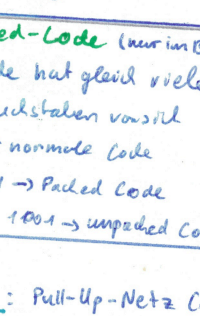 ed-Code (nur im B
de hat gleich viele
uchstaben vorsich
normale Code
1 -> Packed Code
1001 -> unpacked Co
: Pull-Up-Netz C